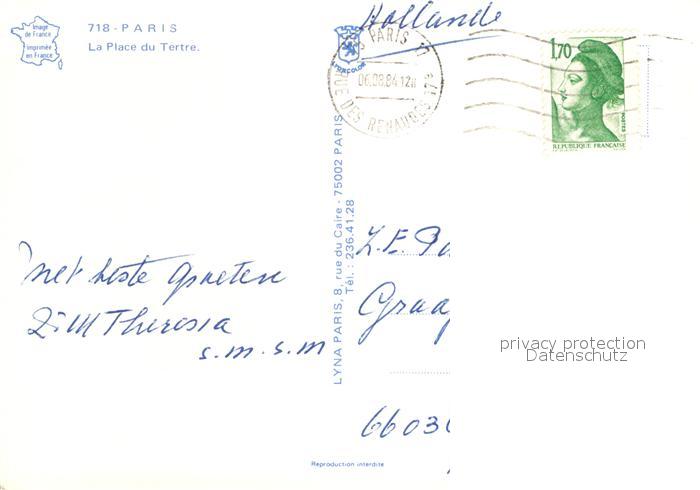 Image
de France
Imprimée
en France
718 - PARIS
La Place du Tertre.
met beste groeten
Zr M Theresia
s.m.s.m
LYNA PARIS, 8, rue du Caire - 75002 PARIS
Tél.: 236.41.28
Hollande
PARIS 17
06.08.84 12H
RUE DES RENAUDES 17è
1,70
POSTES
REPUBLIQUE FRANÇAISE
Z.E. Pa
Graa
6603
privacy protection
Datenschutz
Reproduction interdite